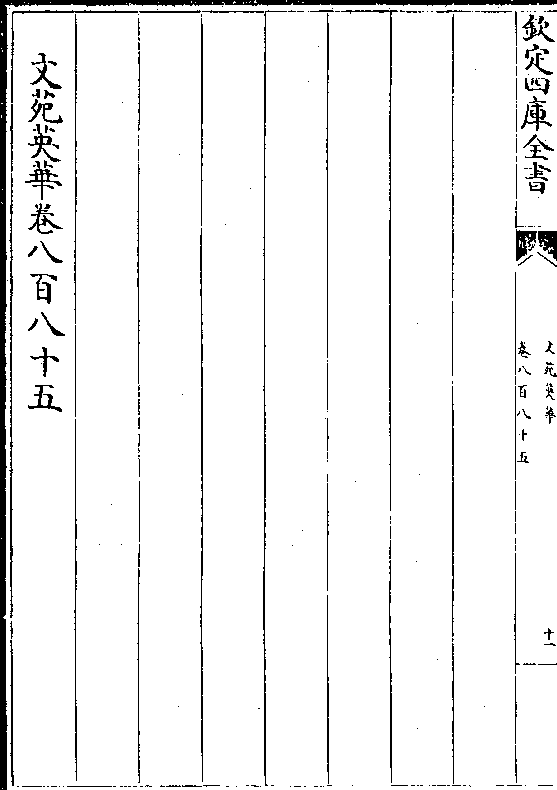 欽定四庫全書
文苑英華
卷八百八十五
十一
文苑英華卷八百八十五